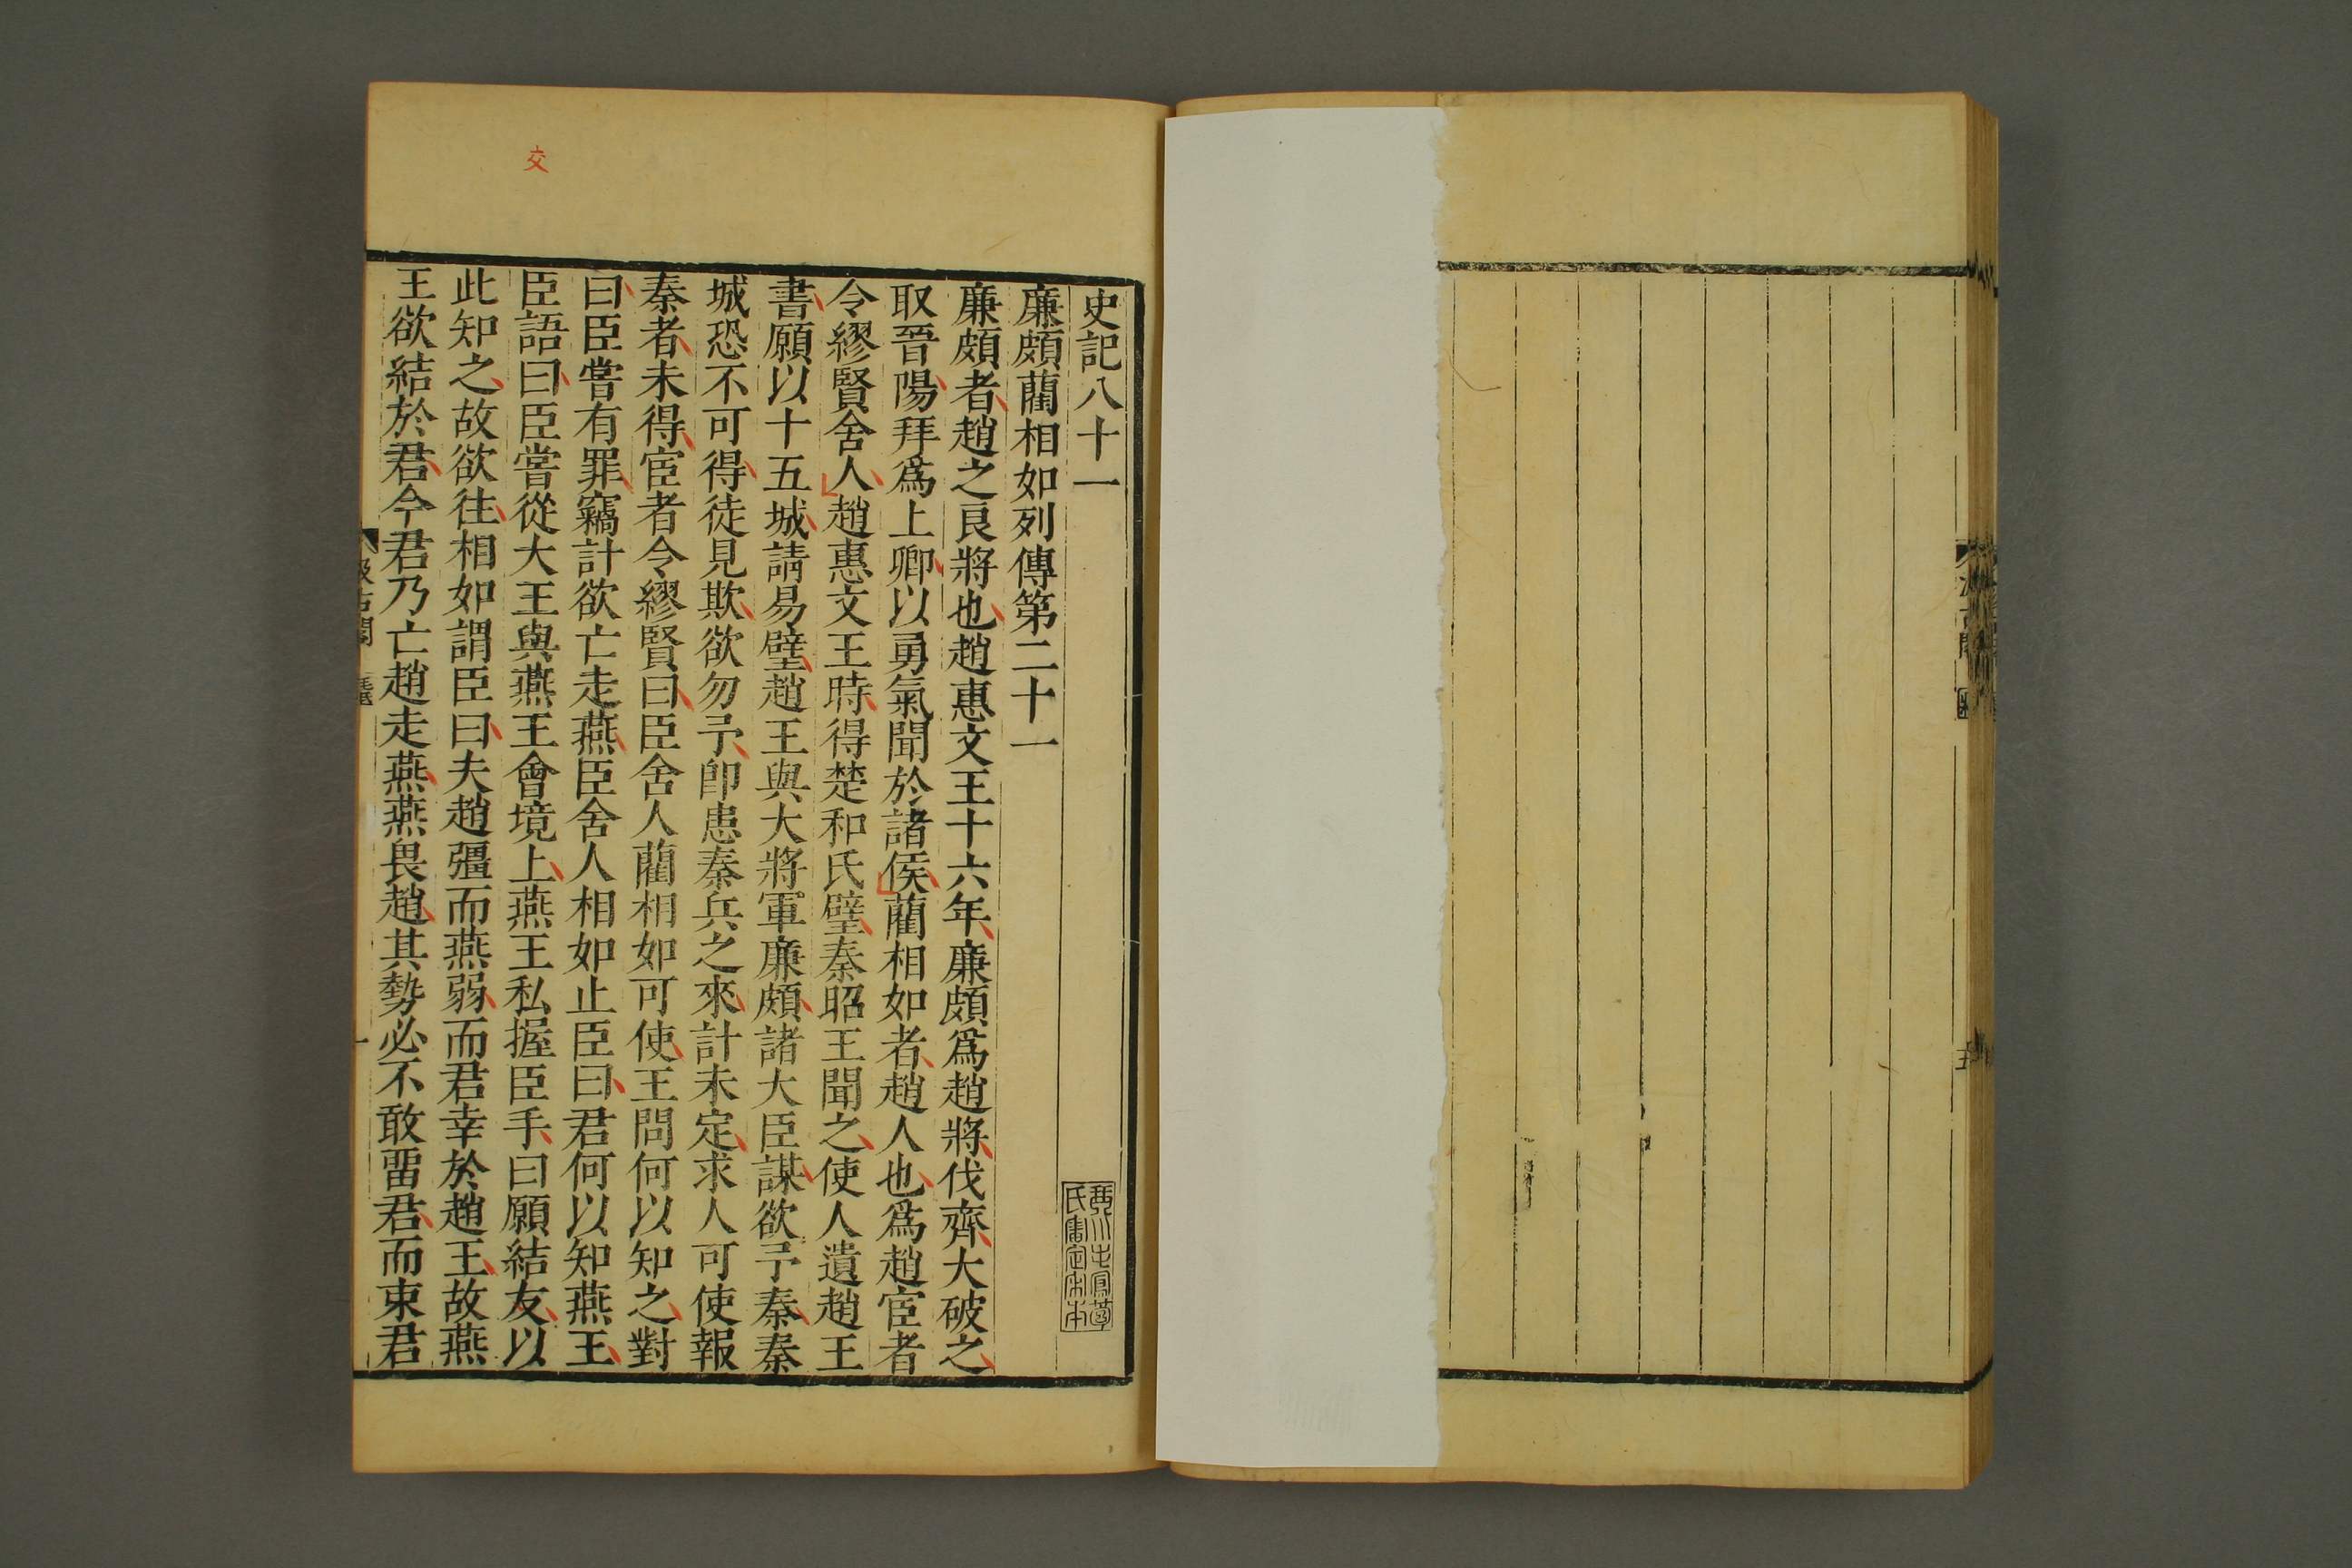 史記八十一
廉頗藺相如列傳第二十一
廉頗者趙之良將也趙惠文王十六年廉頗爲趙將伐齊大破之
取晉陽拜爲上卿以勇氣聞於諸侯藺相如者趙人也爲趙宦者
令繆賢舍人趙惠文王時得楚和氏璧秦昭王聞之使人遺趙王
書願以十五城請易璧趙王與大將軍廉頗諸大臣謀欲予秦秦
城恐不可得徒見欺欲勿予卽患秦兵之來計未定求人可使報
秦者未得宦者令繆賢曰臣舍人藺相如可使王問何以知之對
曰臣嘗有罪竊計欲亡走燕臣舍人相如止臣曰君何以知燕王
臣語曰臣嘗從大王與燕王會境上燕王私握臣手曰願結友以
此知之故欲往相如謂臣曰夫趙彊而燕弱而君幸於趙王故燕
王欲結於君今君乃亡趙走燕燕畏趙其勢必不敢畱君而束君
交